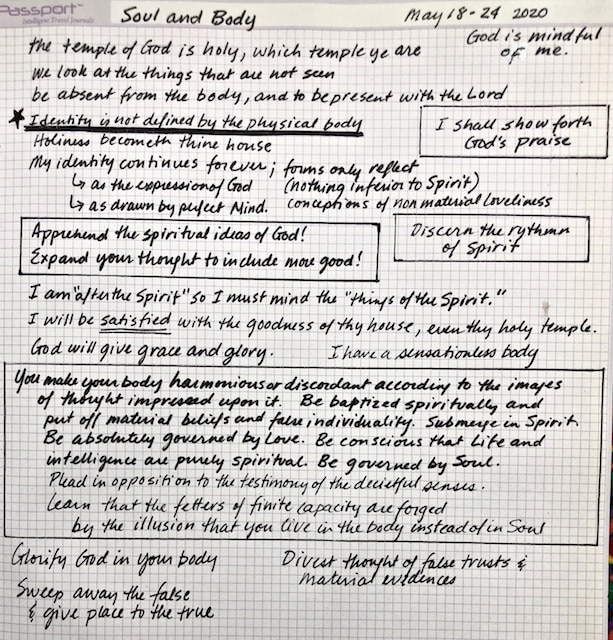 Passport™
Intelligent Travel Journals
Soul and Body
May 18-24 2020
God is mindful
of me.
the temple of God is holy, which temple ye are
We look at the things that are not seen
be absent from the body, and to be present with the Lord
★ Identity is not defined by the physical body
I shall show forth
God's praise
Holiness becometh thine house
My identity continues forever; forms only reflect
↳ as the expression of God (nothing inferior to Spirit)
↳ as drawn by perfect Mind. conceptions of nonmaterial loveliness
Apprehend the spiritual ideas of God!
Expand your thought to include more good!
Discern the rythmn
of Spirit
I am "after the Spirit" so I must mind the "things of the Spirit."
I will be satisfied with the goodness of thy house, even thy holy temple.
God will give grace and glory. I have a sensationless body
You make your body harmonious or discordant according to the images
of thought impressed upon it. Be baptized spiritually and
put off material beliefs and false individuality. Submerge in Spirit.
Be absolutely governed by Love. Be conscious that Life and
intelligence are purely spiritual. Be governed by Soul.
Plead in opposition to the testimony of the decietful senses.
Learn that the fetters of finite capacity are forged
by the illusion that you live in the body instead of in Soul
Glorify God in your body
Divest thought of false trusts &
material evidences
Sweep away the false
& give place to the true